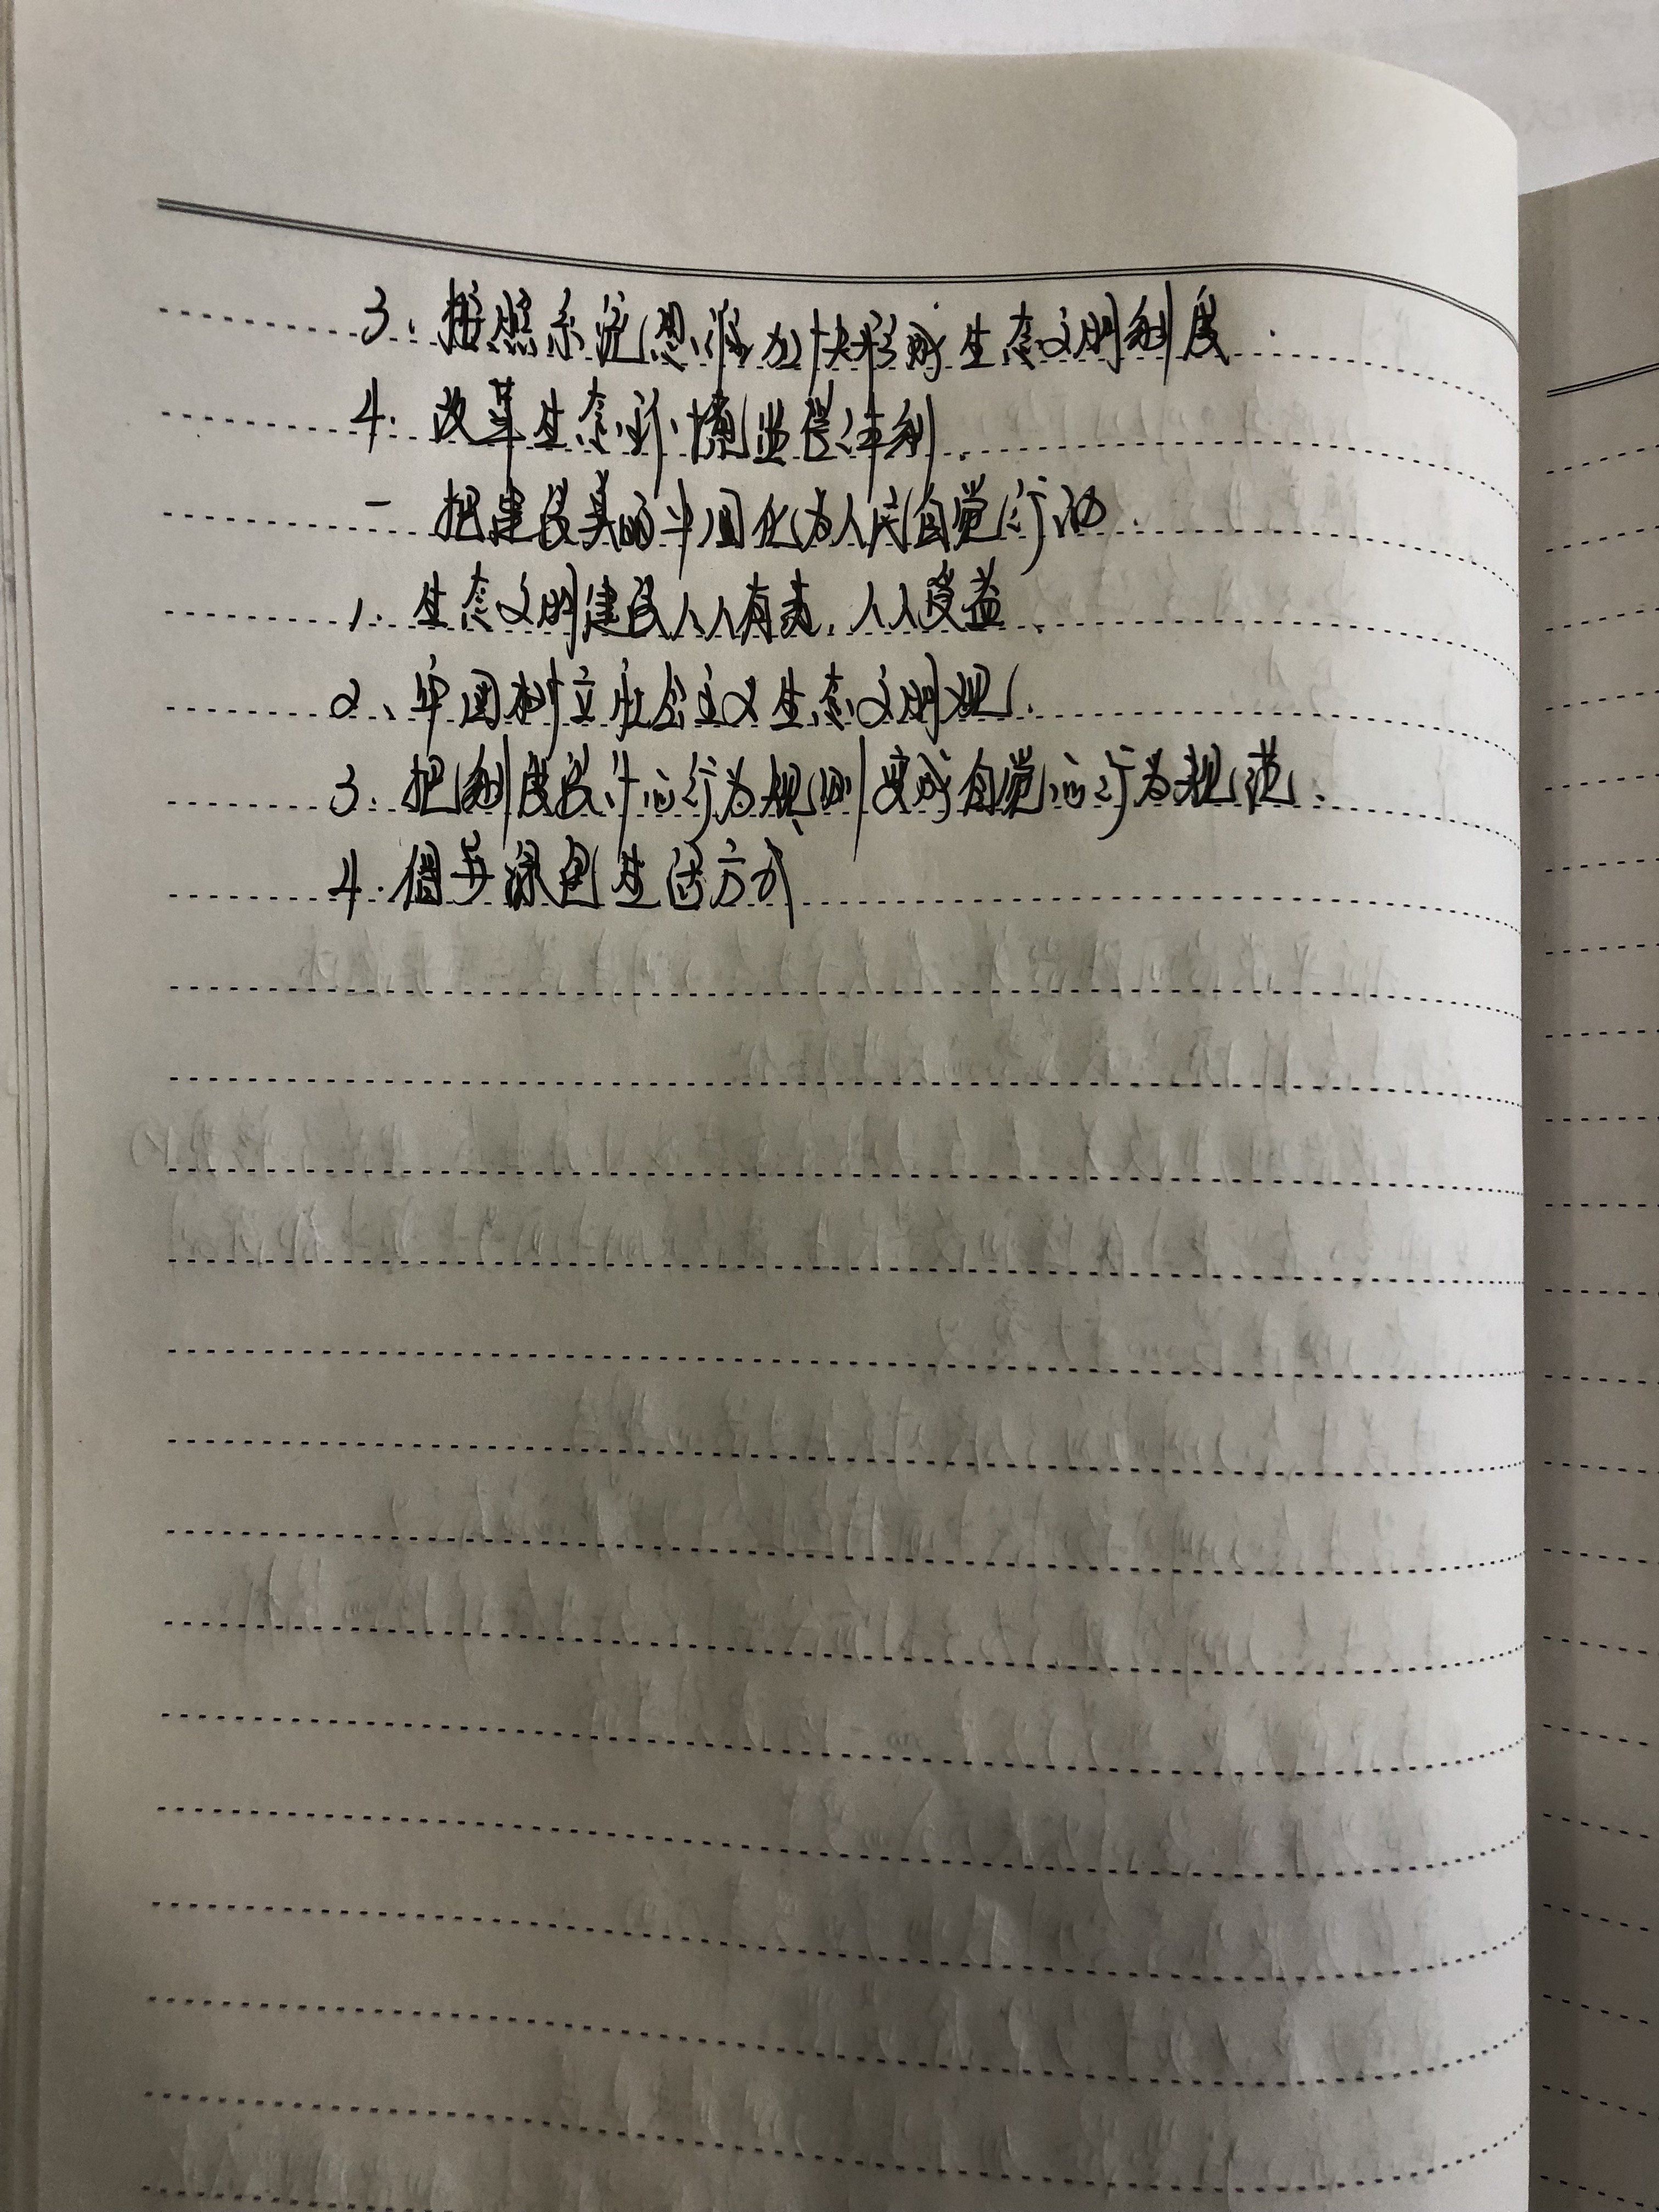 3. 按照系统思维加快形成生态文明制度.
4. 改革生态环境监管体制.
一 把建设美丽中国化为人民自觉行动.
1. 生态文明建设人人有责, 人人受益.
2、牢固树立社会主义生态文明观.
3. 把制度设计的行为规则变成自觉的行为规范.
4. 倡导绿色生活方式